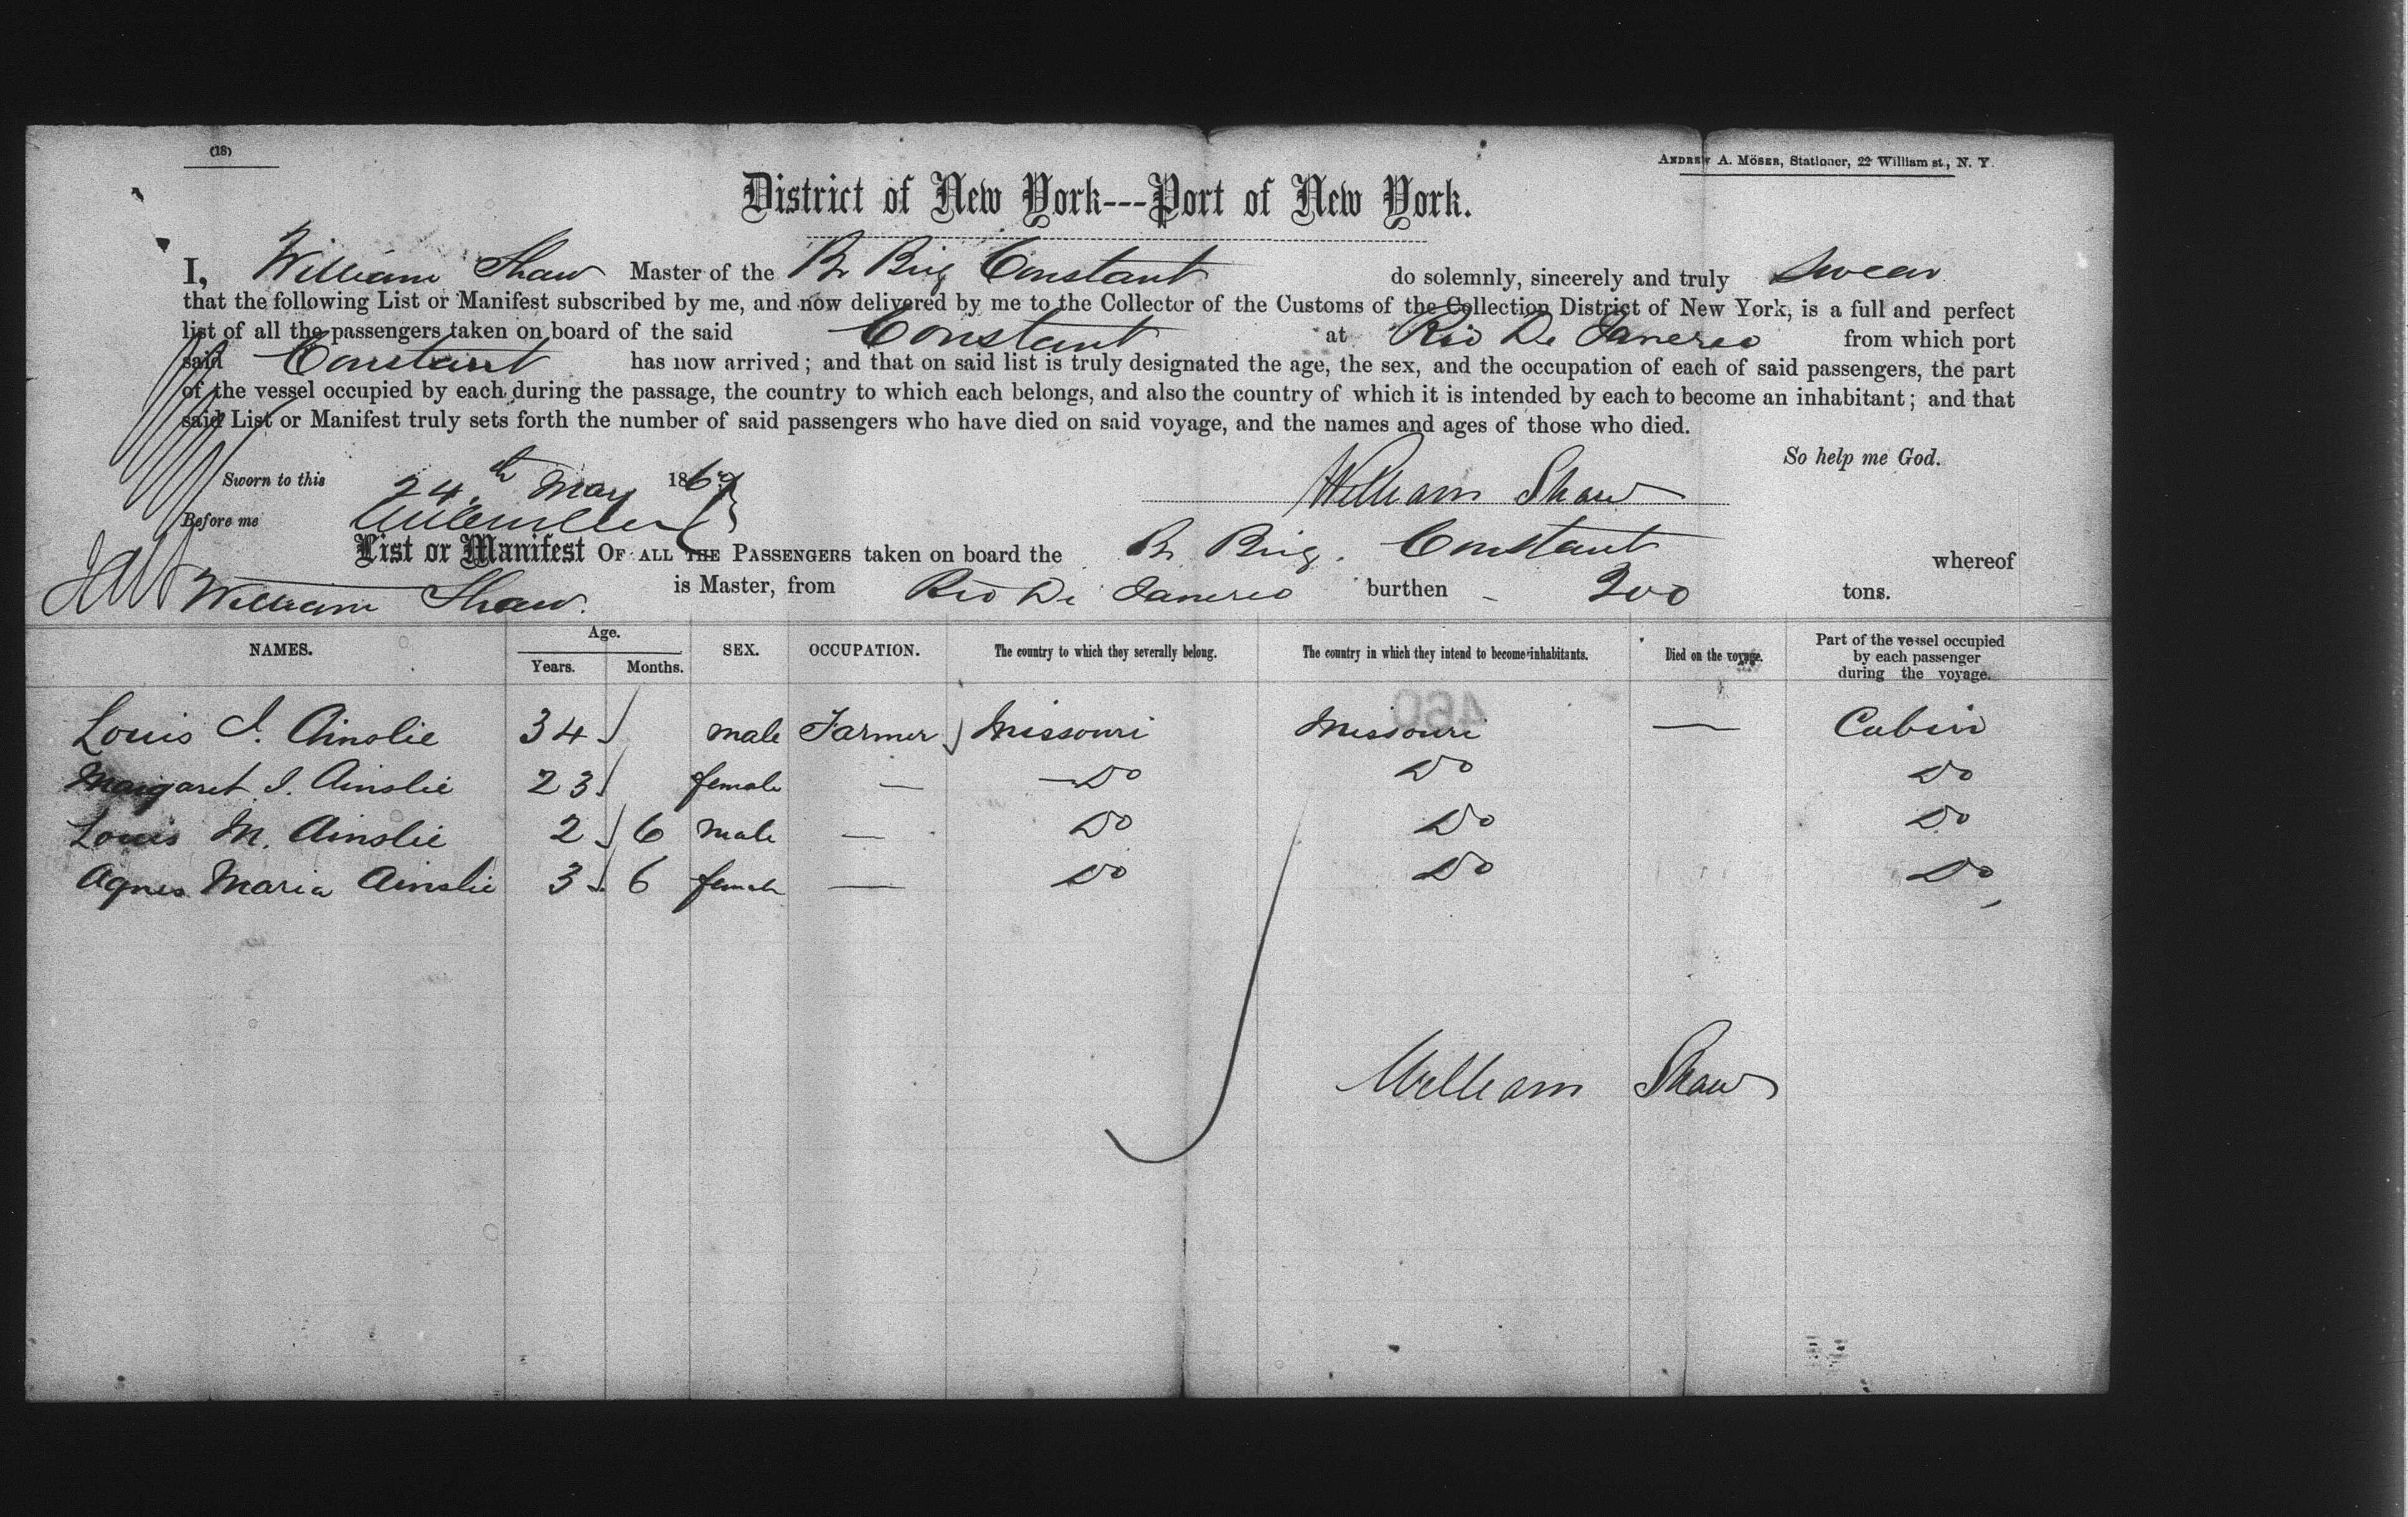 (18)
ANDREW A. MÖSER, Stationer, 22 William st., N. Y.
District of New York---Port of New York.
I, William Shaw Master of the Br Brig Constant do solemnly, sincerely and truly swear
that the following List or Manifest subscribed by me, and now delivered by me to the Collector of the Customs of the Collection District of New York, is a full and perfect
list of all the passengers taken on board of the said Constant at Rio De Janereo from which port
said Constant has now arrived; and that on said list is truly designated the age, the sex, and the occupation of each of said passengers, the part
of the vessel occupied by each during the passage, the country to which each belongs, and also the country of which it is intended by each to become an inhabitant; and that
said List or Manifest truly sets forth the number of said passengers who have died on said voyage, and the names and ages of those who died.
So help me God.
Sworn to this 24th May 1869 William Shaw
Before me
List or Manifest OF ALL THE PASSENGERS taken on board the Br Brig. Constant whereof
William Shaw. is Master, from Rio De Janereo burthen - 200 tons.
NAMES. Age. Years. Months. SEX. OCCUPATION. The country to which they severally belong. The country in which they intend to become inhabitants. Died on the voyage. Part of the vessel occupied by each passenger during the voyage.
460
Louis I. Ainslie 34 male Farmer Missouri Missouri — Cabin
Margaret I. Ainslie 23 female — Do Do Do
Louis M. Ainslie 2 6 male — Do Do Do
Agnes Maria Ainslie 3 6 female — Do Do Do
William Shaw